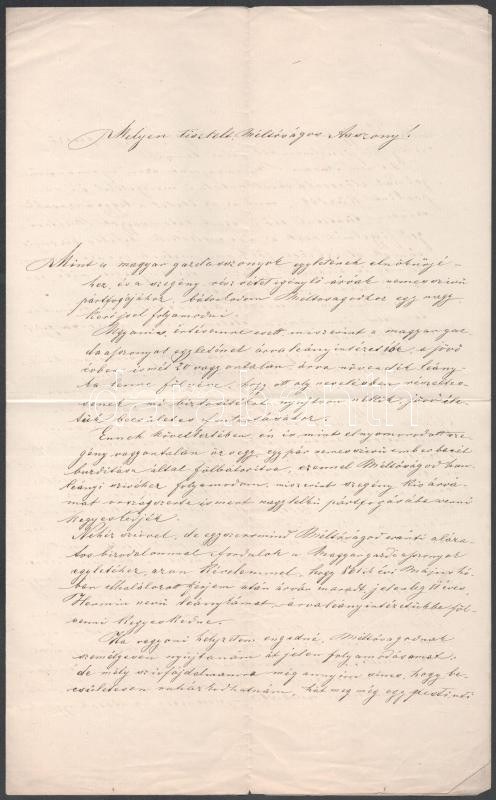 Mélyen tisztelt Méltóságos Asszony!
Mint a magyar gazdasszonyok egyletének elnöknőjé-
hez, és a szegény részvétet igénylő árvák nemesszivü
pártfogójához, bátorkodom Méltóságodhoz egy nagy
kéréssel folyamodni.
Ugyanis, értésemre esett miszerint a magyar gaz-
dasszonyok egyletének árvaleányintézetébe, a jövő
évben ismét 20 vagyontalan árva növendék leány-
ka lenne felvéve, hogy ott oly nevelésben részesülje-
senek, mi biztosítékot nyujtson nékik jövő éle-
tük becsületes fentartásához.
Ennek következtében én is mint elnyomorodott sze-
gény vagyontalan özvegy, egy pár nemesszivü emberbarát
buzdítása által fölbátorítva, ezennel Méltóságod hon-
leányi szivéhez folyamodom, miszerint szegény kis árvá-
mat országszerte ismert nagylelkü pártfogásába venni
kegyeskedjék.
Nehéz szivvel, de egyszersmind Méltóságod iránti aláza-
tos bizodalommal fordulok a Magyar gazdasszonyok
egyletéhez, azon kérelemmel, hogy évi Május hó-
ban elhalálozott férjem után árván maradt, jelenleg éves,
Hermin nevü leánykámat, árvaleányintézetükbe föl-
venni kegyeskedne.
Ha vagyoni helyzetem engedné, Méltóságodnak
személyesen nyujtanám át jelen folyamodásomat,
de mély szivfájdalmamra még annyim sincs, hogy be-
csületesen ruházkodhatnám, hát meg még egy pesti uti